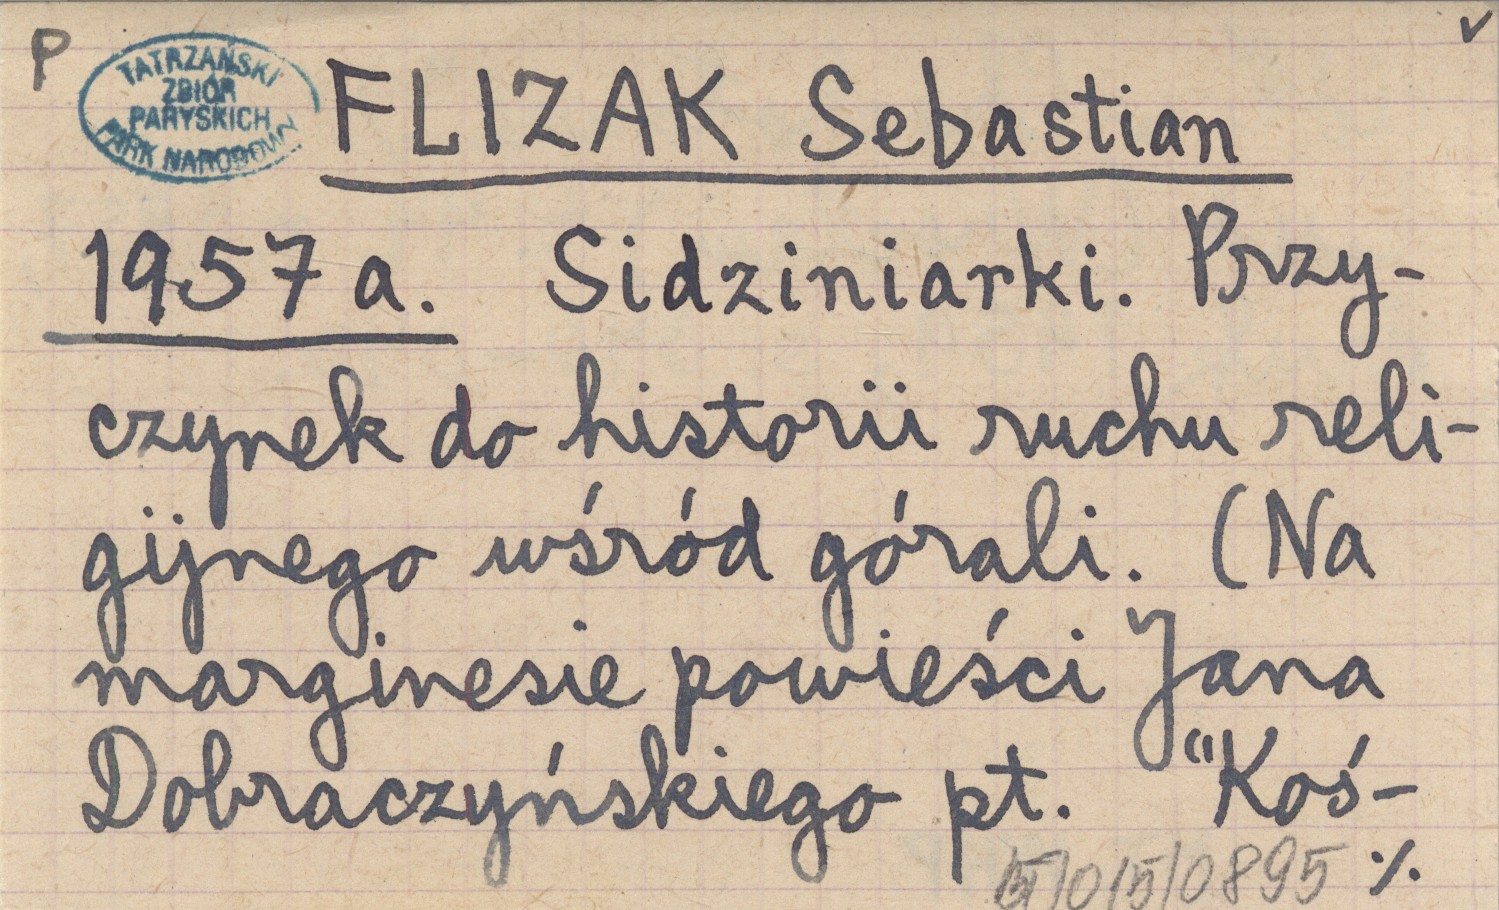 P
v
TATRZAŃSKI
ZBIÓR
PARYSKICH
PARK NARODOWY
FLIZAK Sebastian
1957 a. Sidziniarki. Przy-
czynek do historii ruchu reli-
gijnego wśród górali. (Na
marginesie powieści Jana
Dobraczyńskiego pt. "Koś-
/0/5/0895 ·/.